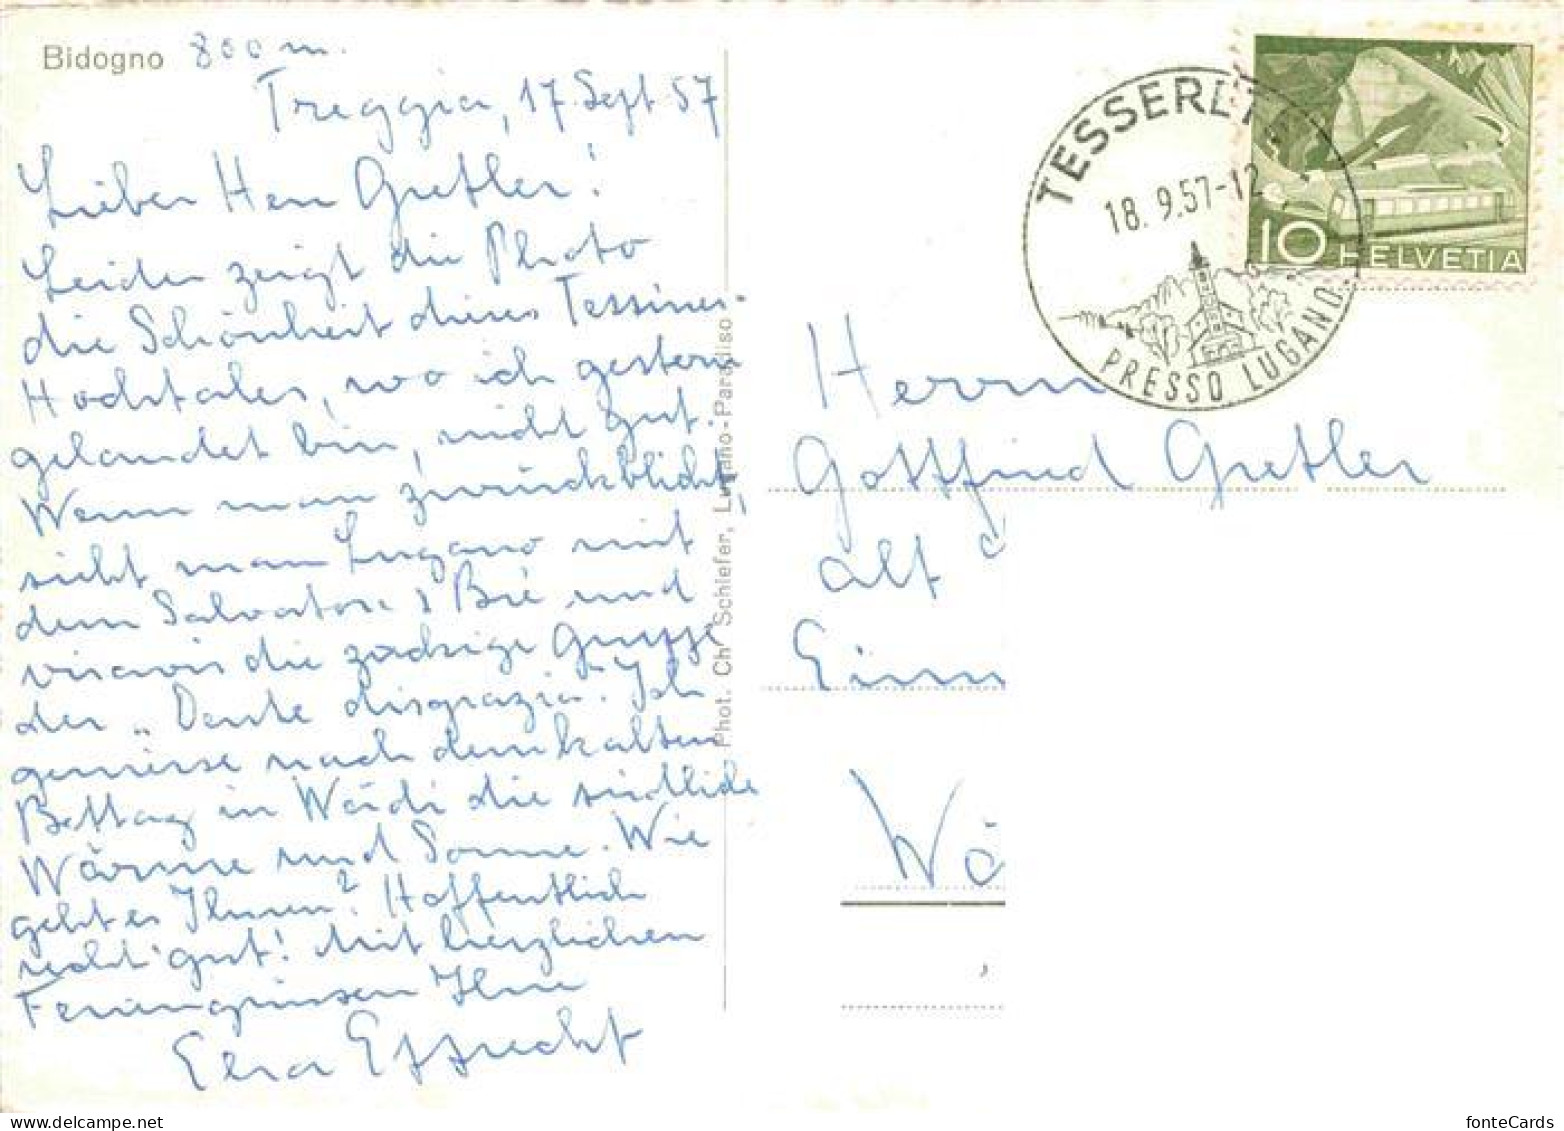 Bidogno 800 m.
Treggia, 17. Sept 57
Lieber Herr Gretler!
Leider zeigt die Photo
die Schönheit dieses Tessiner-
Hochtales, wo ich gestern
gelandet bin, nicht gut.
Wenn man zurückblickt,
sieht man Lugano mit
dem Salvatore & Bré und
visavis die zackige Gruppe
der „Dente disgrazia". Ich
geniesse nach dem kalten
Bettag in Wädi die südliche
Wärme und Sonne. Wie
geht es Ihnen? Hoffentlich
recht gut! Mit herzlichen
Feriengrüssen Ihre
Elsa
Phot. Chr Schiefer, Lugano-Paradiso
TESSERETE
18. 9.57-12
PRESSO LUGANO
10 HELVETIA
Herrn
Gottfried Gretler
alt
Einn
Wä
fonteCards
delcampe.net